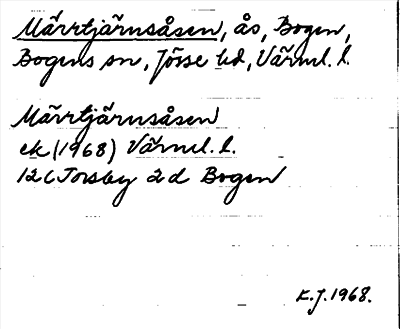 Märrtjärnsåsen, ås, Bogen,
Bogens sn, Jösse hd, Värml. l.
Märrtjärnsåsen
ek (1968) Värml. l.
12C Torsby 2d Bogen
K.J. 1968.